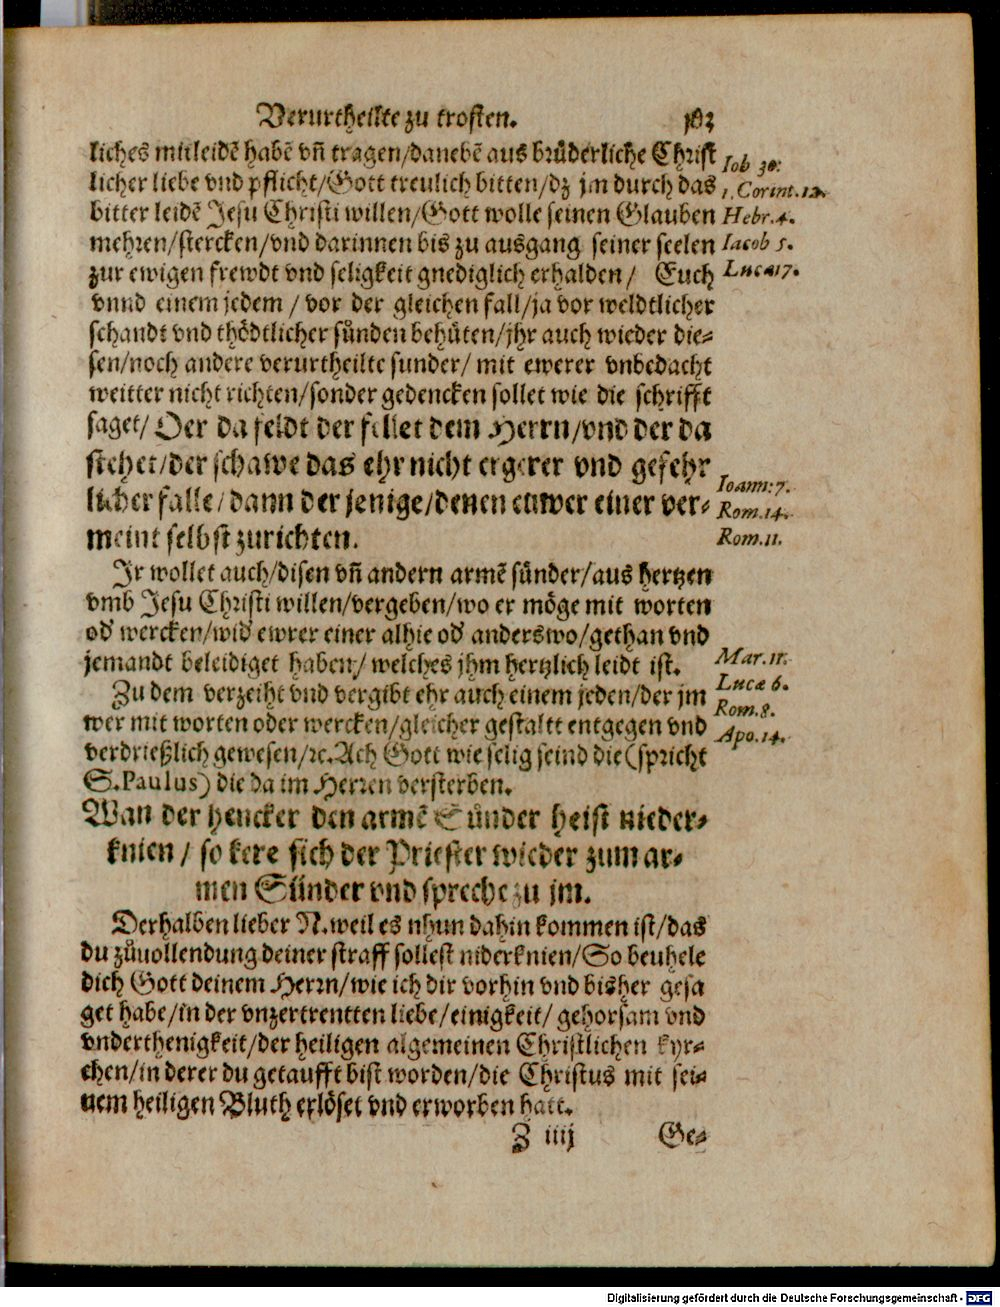 Verurtheilte zu trosten. 182
liches mitleidē habē vñ tragen/danebē aus brůderliche Christ
licher liebe vnd pflicht/Gott treulich bitten/dz jm durch das
bitter leidē Jesu Christi willen/Gott wolle seinen Glauben
mehren/stercken/vnd darinnen bis zu ausgang seiner seelen
zur ewigen frewdt vnd seligkeit gnediglich erhalden/ Euch
vnnd einem jedem / vor der gleichen fall/ja vor weldtlicher
schandt vnd thödtlicher sůnden behüten/jhr auch wieder die-
sen/noch andere verurtheilte sunder/ mit ewerer vnbedacht
weitter nicht richten/sonder gedencken sollet wie die schrifft
saget/ Der da feldt der fellet dem Herrn/vnd der da
stehet/der schawe das ehr nicht ergerer vnd gefehr
licher falle/dann der jenige/denen etwer einer ver-
meint selbst zurichten.
Iob 30:
1. Corint. 12.
Hebr. 4.
Iacob 5.
Lucæ 17.
Ioann: 7.
Rom. 14.
Rom. 11.
Jr wollet auch/disen vñ andern armē sůnder/aus hertzen
vmb Jesu Christi willen/vergeben/wo er möge mit worten
od' wercken/wid' ewrer einer alhie od' anderswo/gethan vnd
jemandt beleidiget haben/ welches jhm hertzlich leidt ist.
Zu dem verzeiht vnd vergibt ehr auch einem jeden/der jm
wer mit worten oder wercken/gleicher gestaltt entgegen vnd
verdrießlich gewesen/ꝛc. Ach Gott wie selig seind die (spricht
S. Paulus) die da im Herren versterben.
Mar. 11.
Lucæ 6.
Rom. 8.
Apo. 14.
Wan der hencker den armē Sůnder heist nieder-
knien / so kere sich der Priester wieder zum ar-
men Sůnder vnd spreche zu jm.
Derhalben lieber N. weil es nhun dahin kommen ist/das
du zůuollendung deiner straff sollest niderknien/So beuhele
dich Gott deinem Herrn/wie ich dir vorhin vnd bisher gesa
get habe/in der vnzertrentten liebe/einigkeit/ gehorsam vnd
vnderthenigkeit/der heiligen algemeinen Christlichen kyr-
chen/in derer du getaufft bist worden/die Christus mit sei-
nem heiligen Bluth erlöset vnd erworben hatt.
Z iiij Ge-
Digitalisierung gefördert durch die Deutsche Forschungsgemeinschaft - DFG